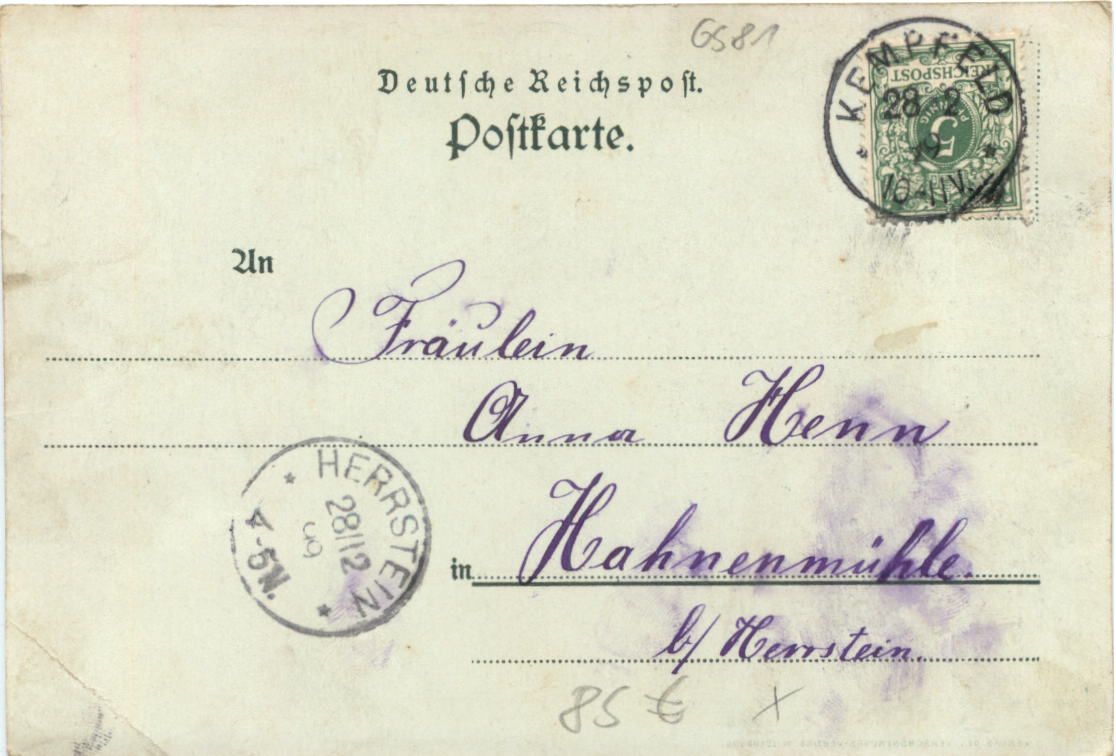 GS81
Deutsche Reichspost.
Postkarte.
KEMPFELD
28 2
10-11V.
REICHSPOST
5
PFENNIG
An
Fräulein
Anna Henn
HERRSTEIN
28/12
99
4-5N.
in Hahnenmühle.
b/ Herrstein.
85 € X